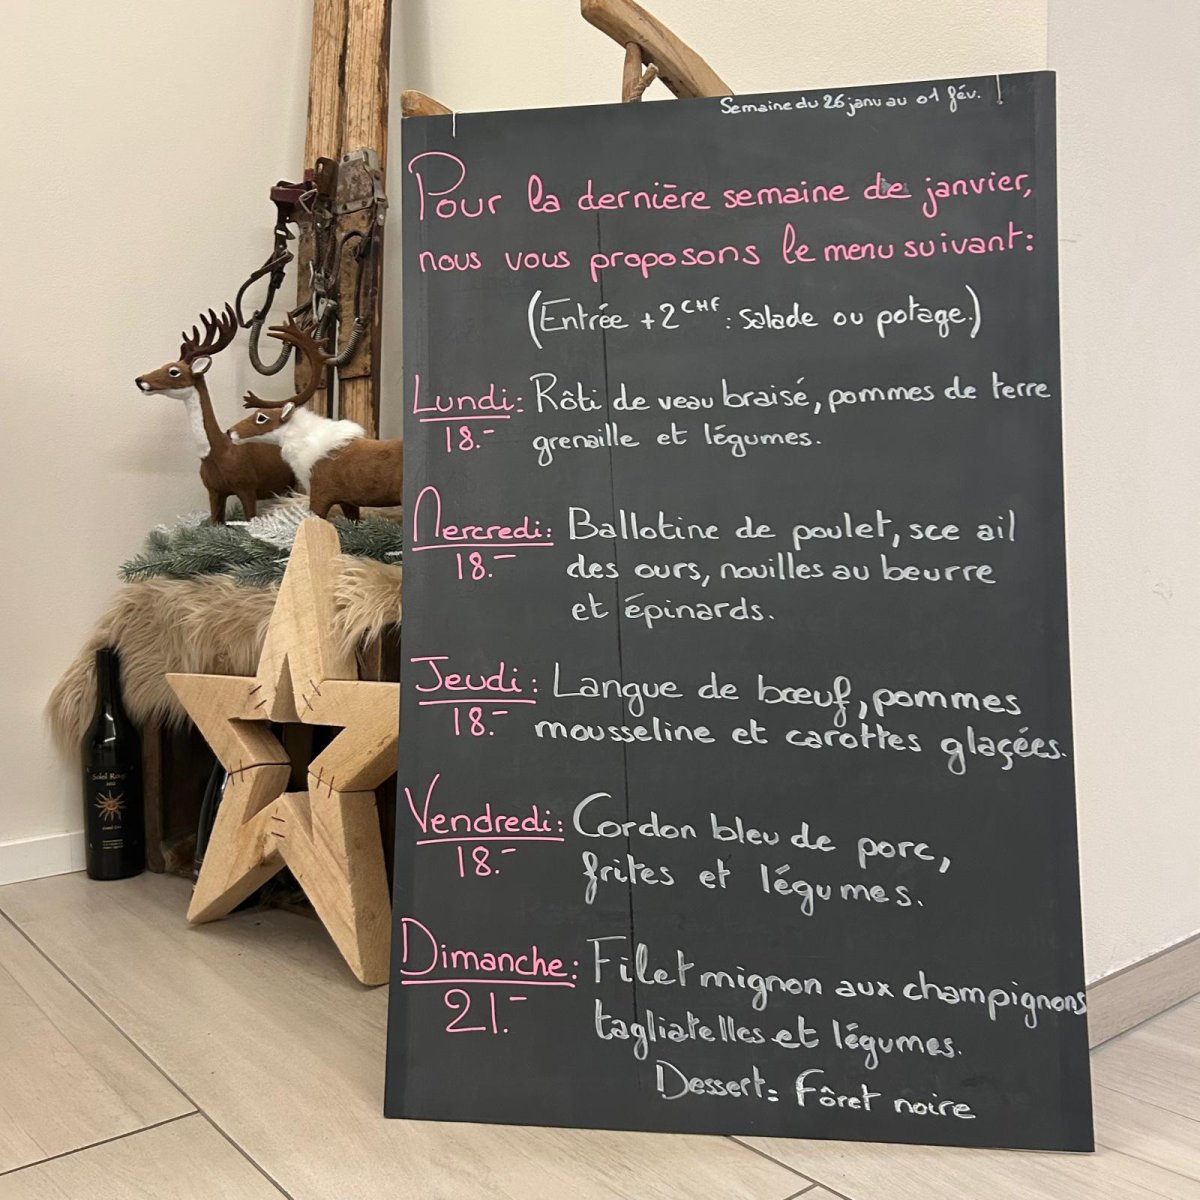 Semaine du 26 janv au 01 fév.
Pour la dernière semaine de janvier,
nous vous proposons le menu suivant:
(Entrée +2CHF: Salade ou potage.)
Lundi: Rôti de veau braisé, pommes de terre
18.- grenaille et légumes.
Mercredi: Ballotine de poulet, sce ail
18.- des ours, nouilles au beurre
et épinards.
Jeudi: Langue de bœuf, pommes
18.- mousseline et carottes glaçées.
Vendredi: Cordon bleu de porc,
18.- frites et légumes.
Dimanche: Filet mignon aux champignons
21.- tagliatelles et légumes.
Dessert= Fôret noire
Soleil Rouge